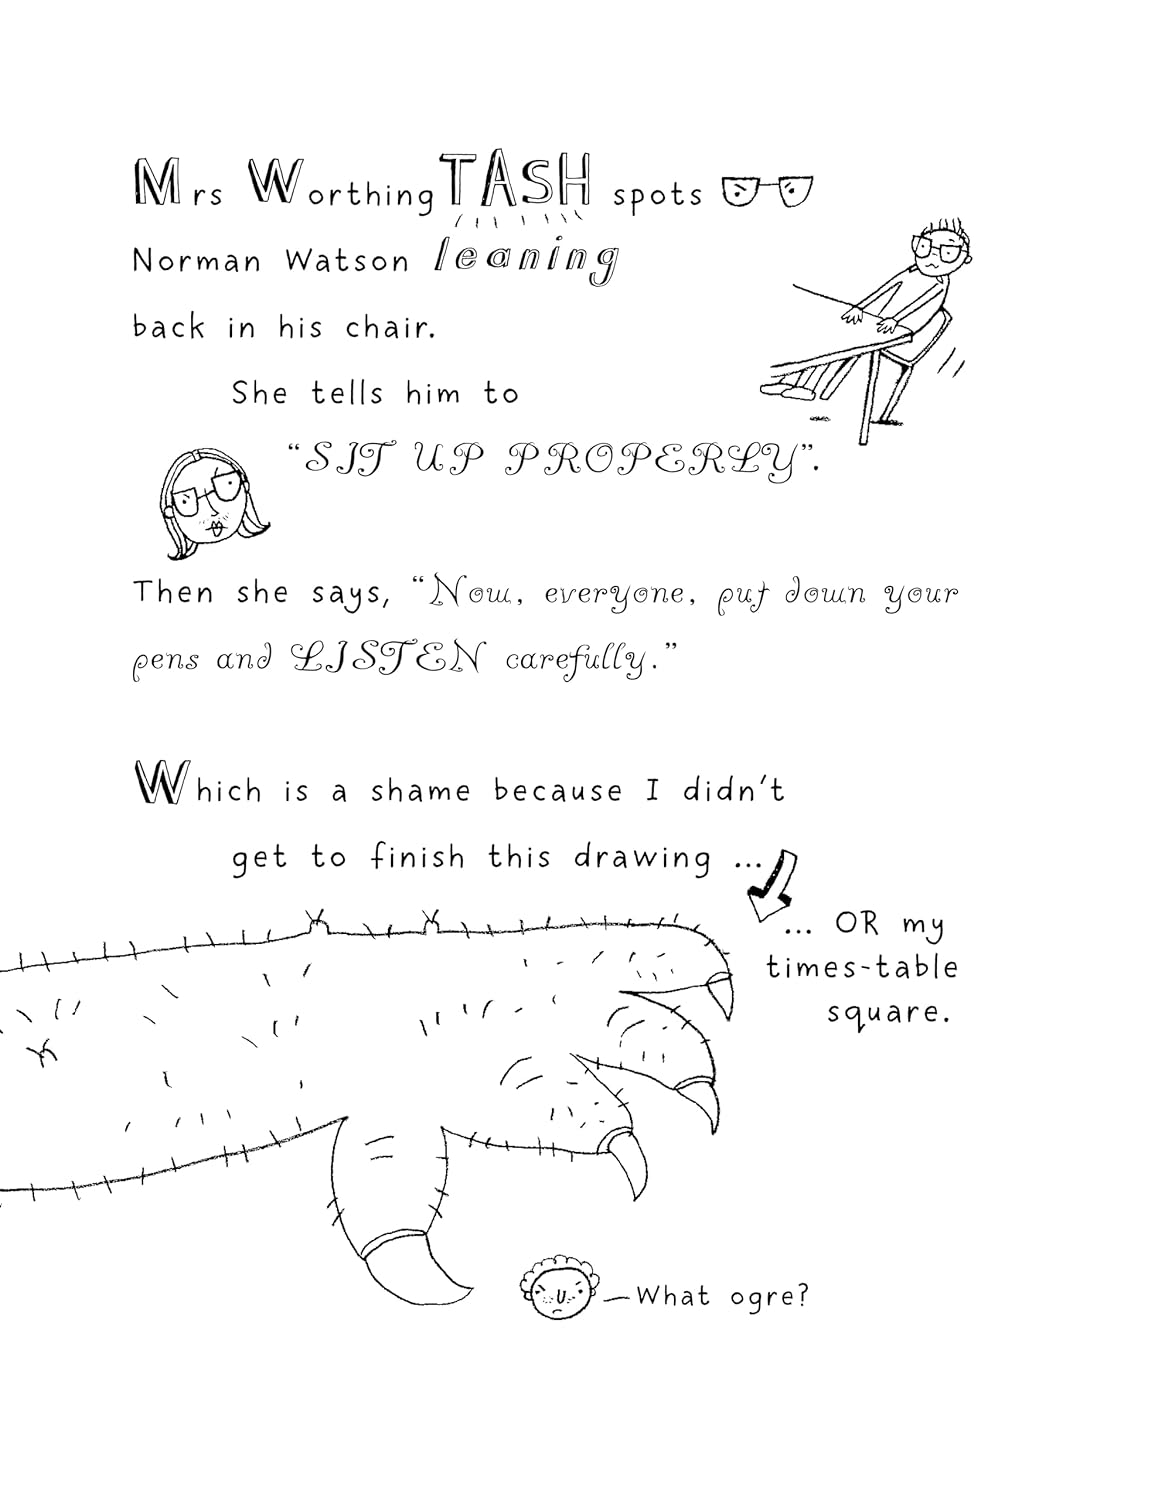 Mrs WorthingTASH spots
Norman Watson leaning
back in his chair.
She tells him to
“SIT UP PROPERLY”.
Then she says, “Now, everyone, put down your
pens and LISTEN carefully.”
Which is a shame because I didn't
get to finish this drawing ...
... OR my
times-table
square.
What ogre?